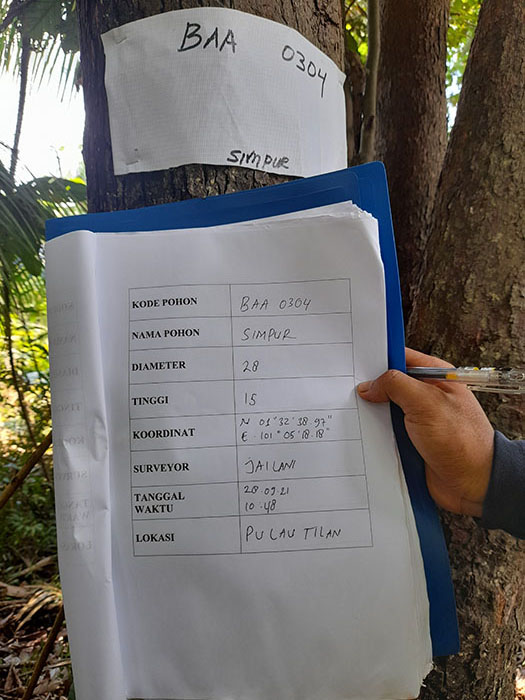 BAA 0304
SIMPUR
KODE POHON BAA 0304
NAMA POHON SIMPUR
DIAMETER 28
TINGGI 15
KOORDINAT N 01°32'38.97"
E.101°05'18.18"
SURVEYOR JAILANI
TANGGAL 28.09.21
WAKTU 10.48
LOKASI PULAU TILAN